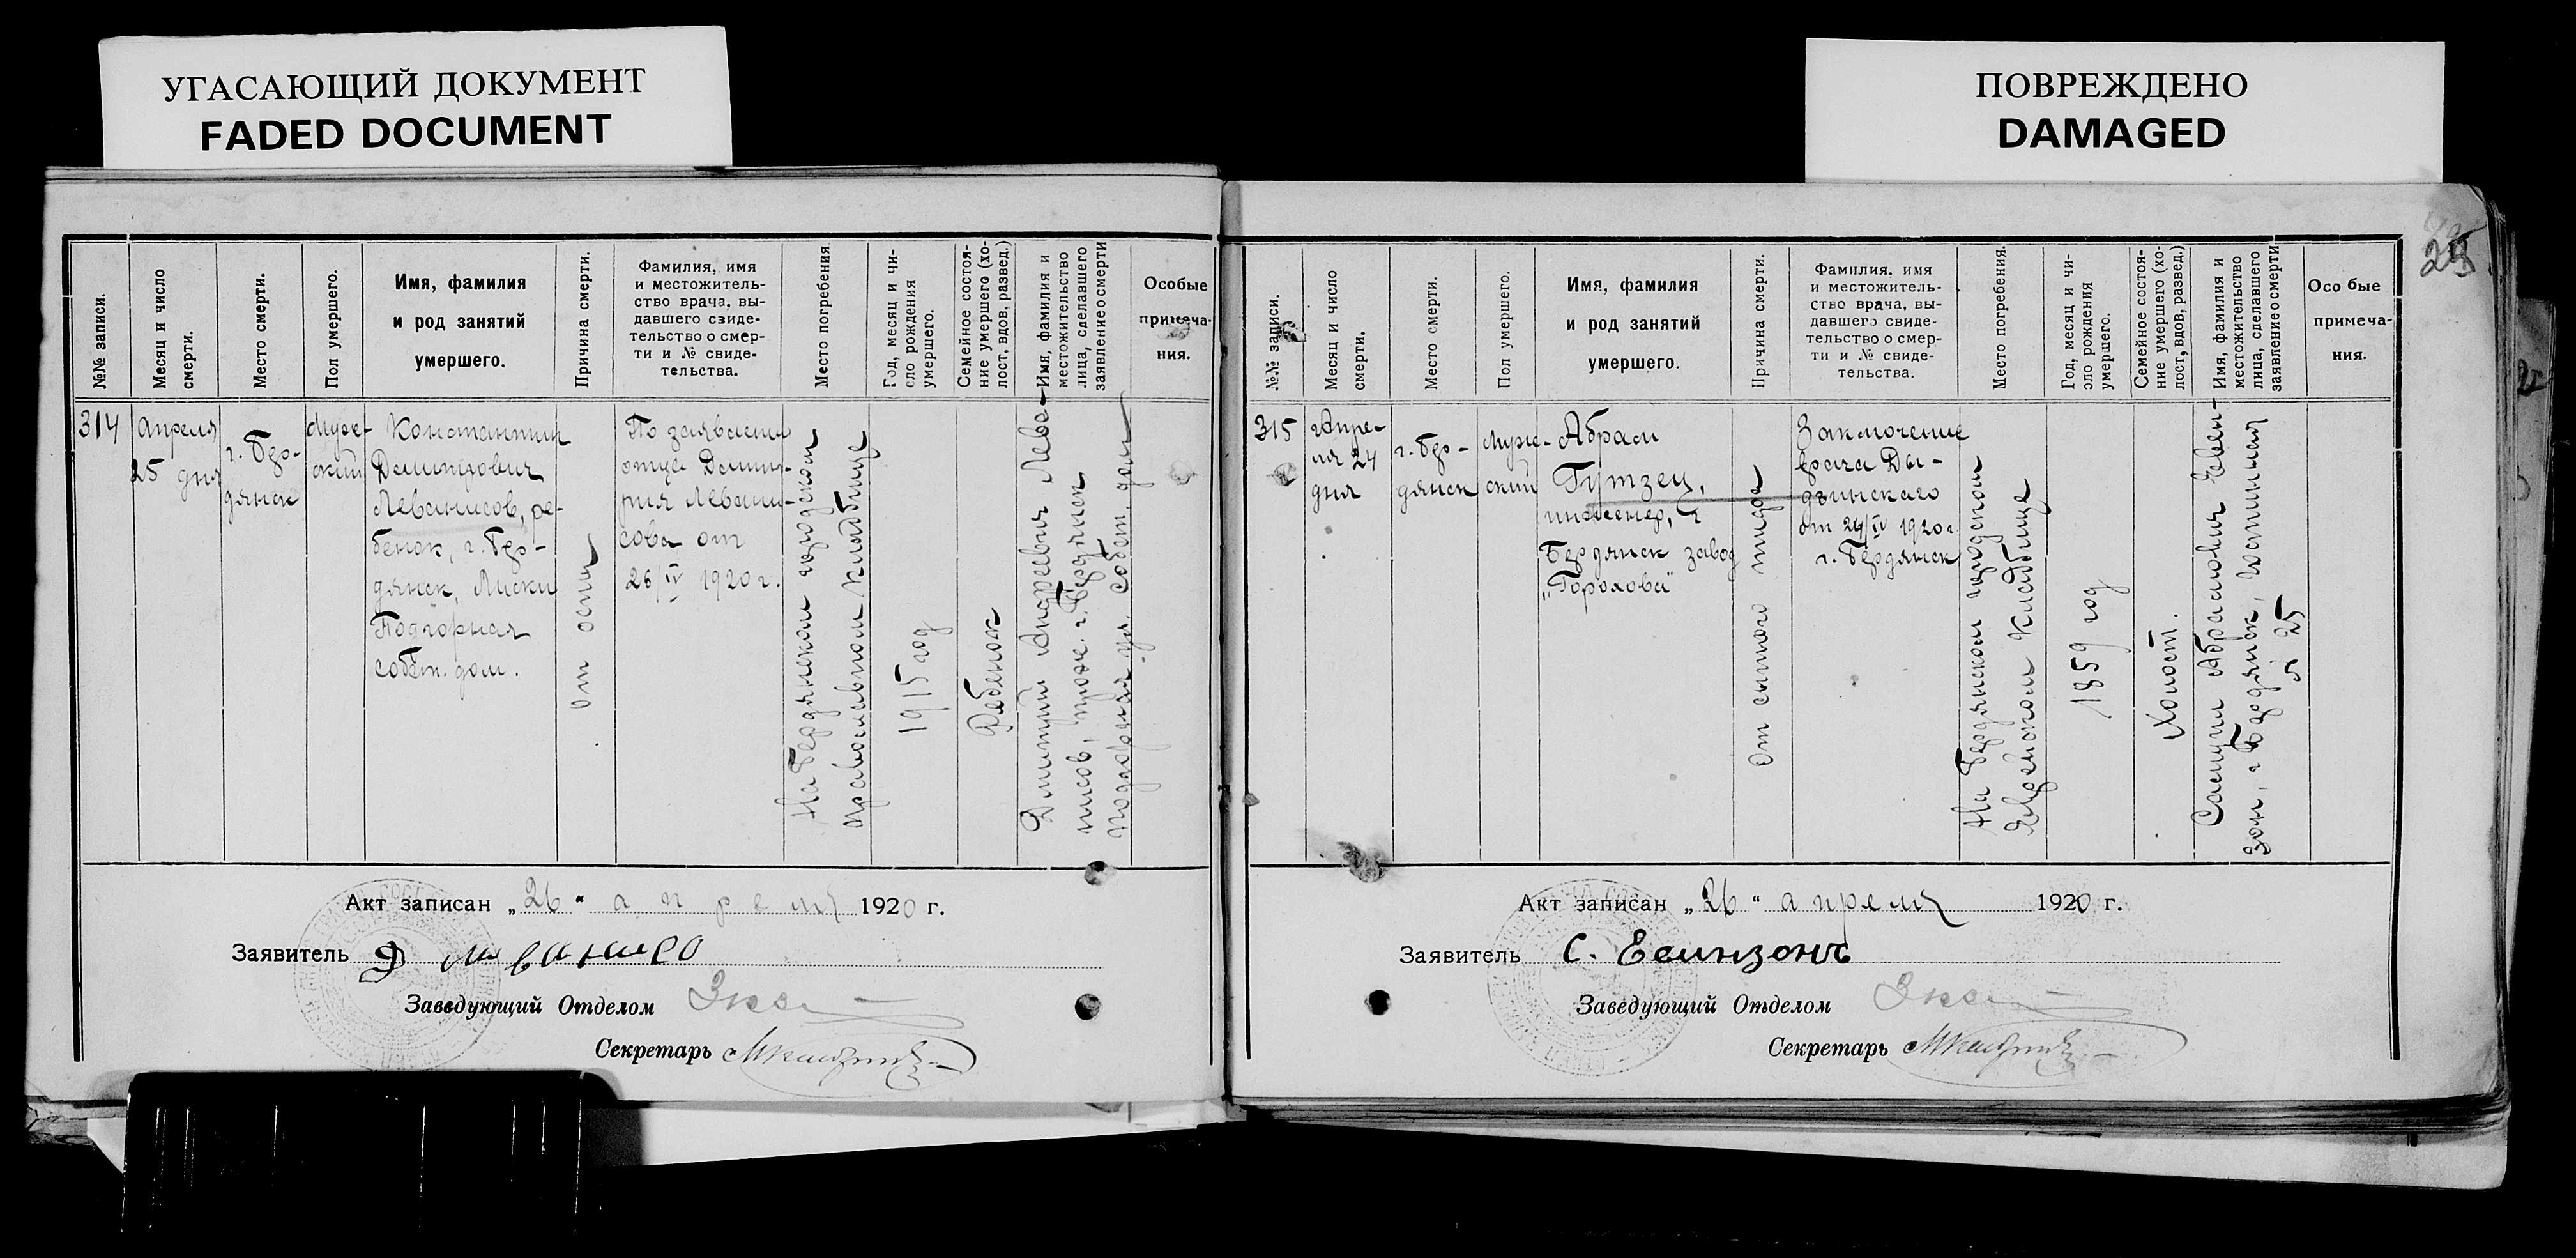 УГАСАЮЩИЙ ДОКУМЕНТ
FADED DOCUMENT
ПОВРЕЖДЕНО
DAMAGED
№№ записи.
Месяц и число
смерти.
Место смерти.
Пол умершего.
Имя, фамилия
и род занятий
умершего.
Причина смерти.
Фамилия, имя
и местожитель-
ство врача, вы-
давшего свиде-
тельство о смер-
ти и № свиде-
тельства.
Место погребения
Год, месяц и чи-
сло рождения
умершего.
Семейное состоя-
ние умершего (хо-
лост, вдов, развед.)
Имя, фамилия и
местожительство
лица, сделавшего
заявление о смерти
Особые
примеча-
ния.
314
Апреля
25 дня
г. Бер-
дянск
Муж-
ской
Константин
Димитрович
Леванисов, ре-
бенок, г. Бер-
дянск, Лиски
Подгорная
собст. дом.
От оспы
По заявлению
отца Дмит-
рия Левани-
сова от
26/IV 1920 г.
На Бердянском городском
православном кладбище
1915 год
Ребенок
Дмитрий Андреевич Лева-
нисов, прож. г. Бердянск
Подгорная ул. собст. дом
Акт записан „26“ апреля 1920 г.
Заявитель Д
Заведующий Отделом
Секретарь
25
№№ записи.
Месяц и число
смерти.
Место смерти.
Пол умершего.
Имя, фамилия
и род занятий
умершего.
Причина смерти.
Фамилия, имя
и местожитель-
ство врача, вы-
давшего свиде-
тельство о смер-
ти и № свиде-
тельства.
Место погребения.
Год, месяц и чи-
сло рождения
умершего.
Семейное состоя-
ние умершего (хо-
лост, вдов, развед.)
Имя, фамилия и
местожительство
лица, сделавшего
заявление о смерти
Особые
примеча-
ния.
315
Апре-
ля 24
дня
г. Бер-
дянск
Муж-
ской
Абрам
Гутзец,
инженер, г.
Бердянск завод
„Горохова“
От сыпного тифа
Заключение
врача Ды-
дзинскаго
от 24/IV 1920 г.
г. Бердянск
На Бердянском городском
Еврейском кладбище
1859 год
Холост.
Самуил Абрамович Евен-
зон, г. Бердянск,
№ 25
Акт записан „26“ апреля 1920 г.
Заявитель С.
Заведующий Отделом
Секретарь